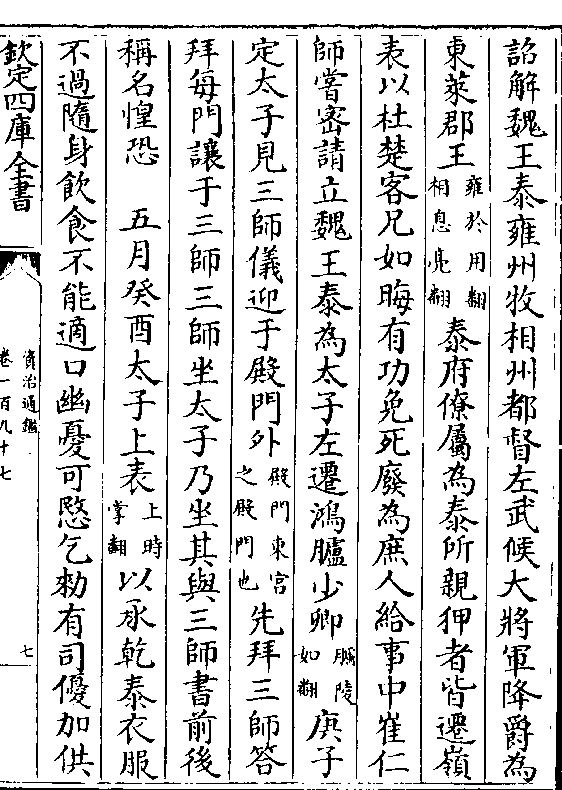 詔解魏王泰雍州牧相州都督左武候大將軍降爵為
東萊郡王雍於用翻相息亮翻泰府僚屬為泰所親狎者皆遷嶺
表以杜楚客兄如晦有功免死廢為庶人給事中崔仁
師嘗密請立魏王泰為太子左遷鴻臚少卿臚陵如翻庚子
定太子見三師儀迎于殿門外殿門東宮之殿門也先拜三師答
拜每門讓于三師三師坐太子乃坐其與三師書前後
稱名惶恐　五月癸酉太子上表上時掌翻以承乾泰衣服
不過隨身飲食不能適口幽憂可愍乞勑有司優加供
欽定四庫全書
資治通鑑
卷一百九十七
七